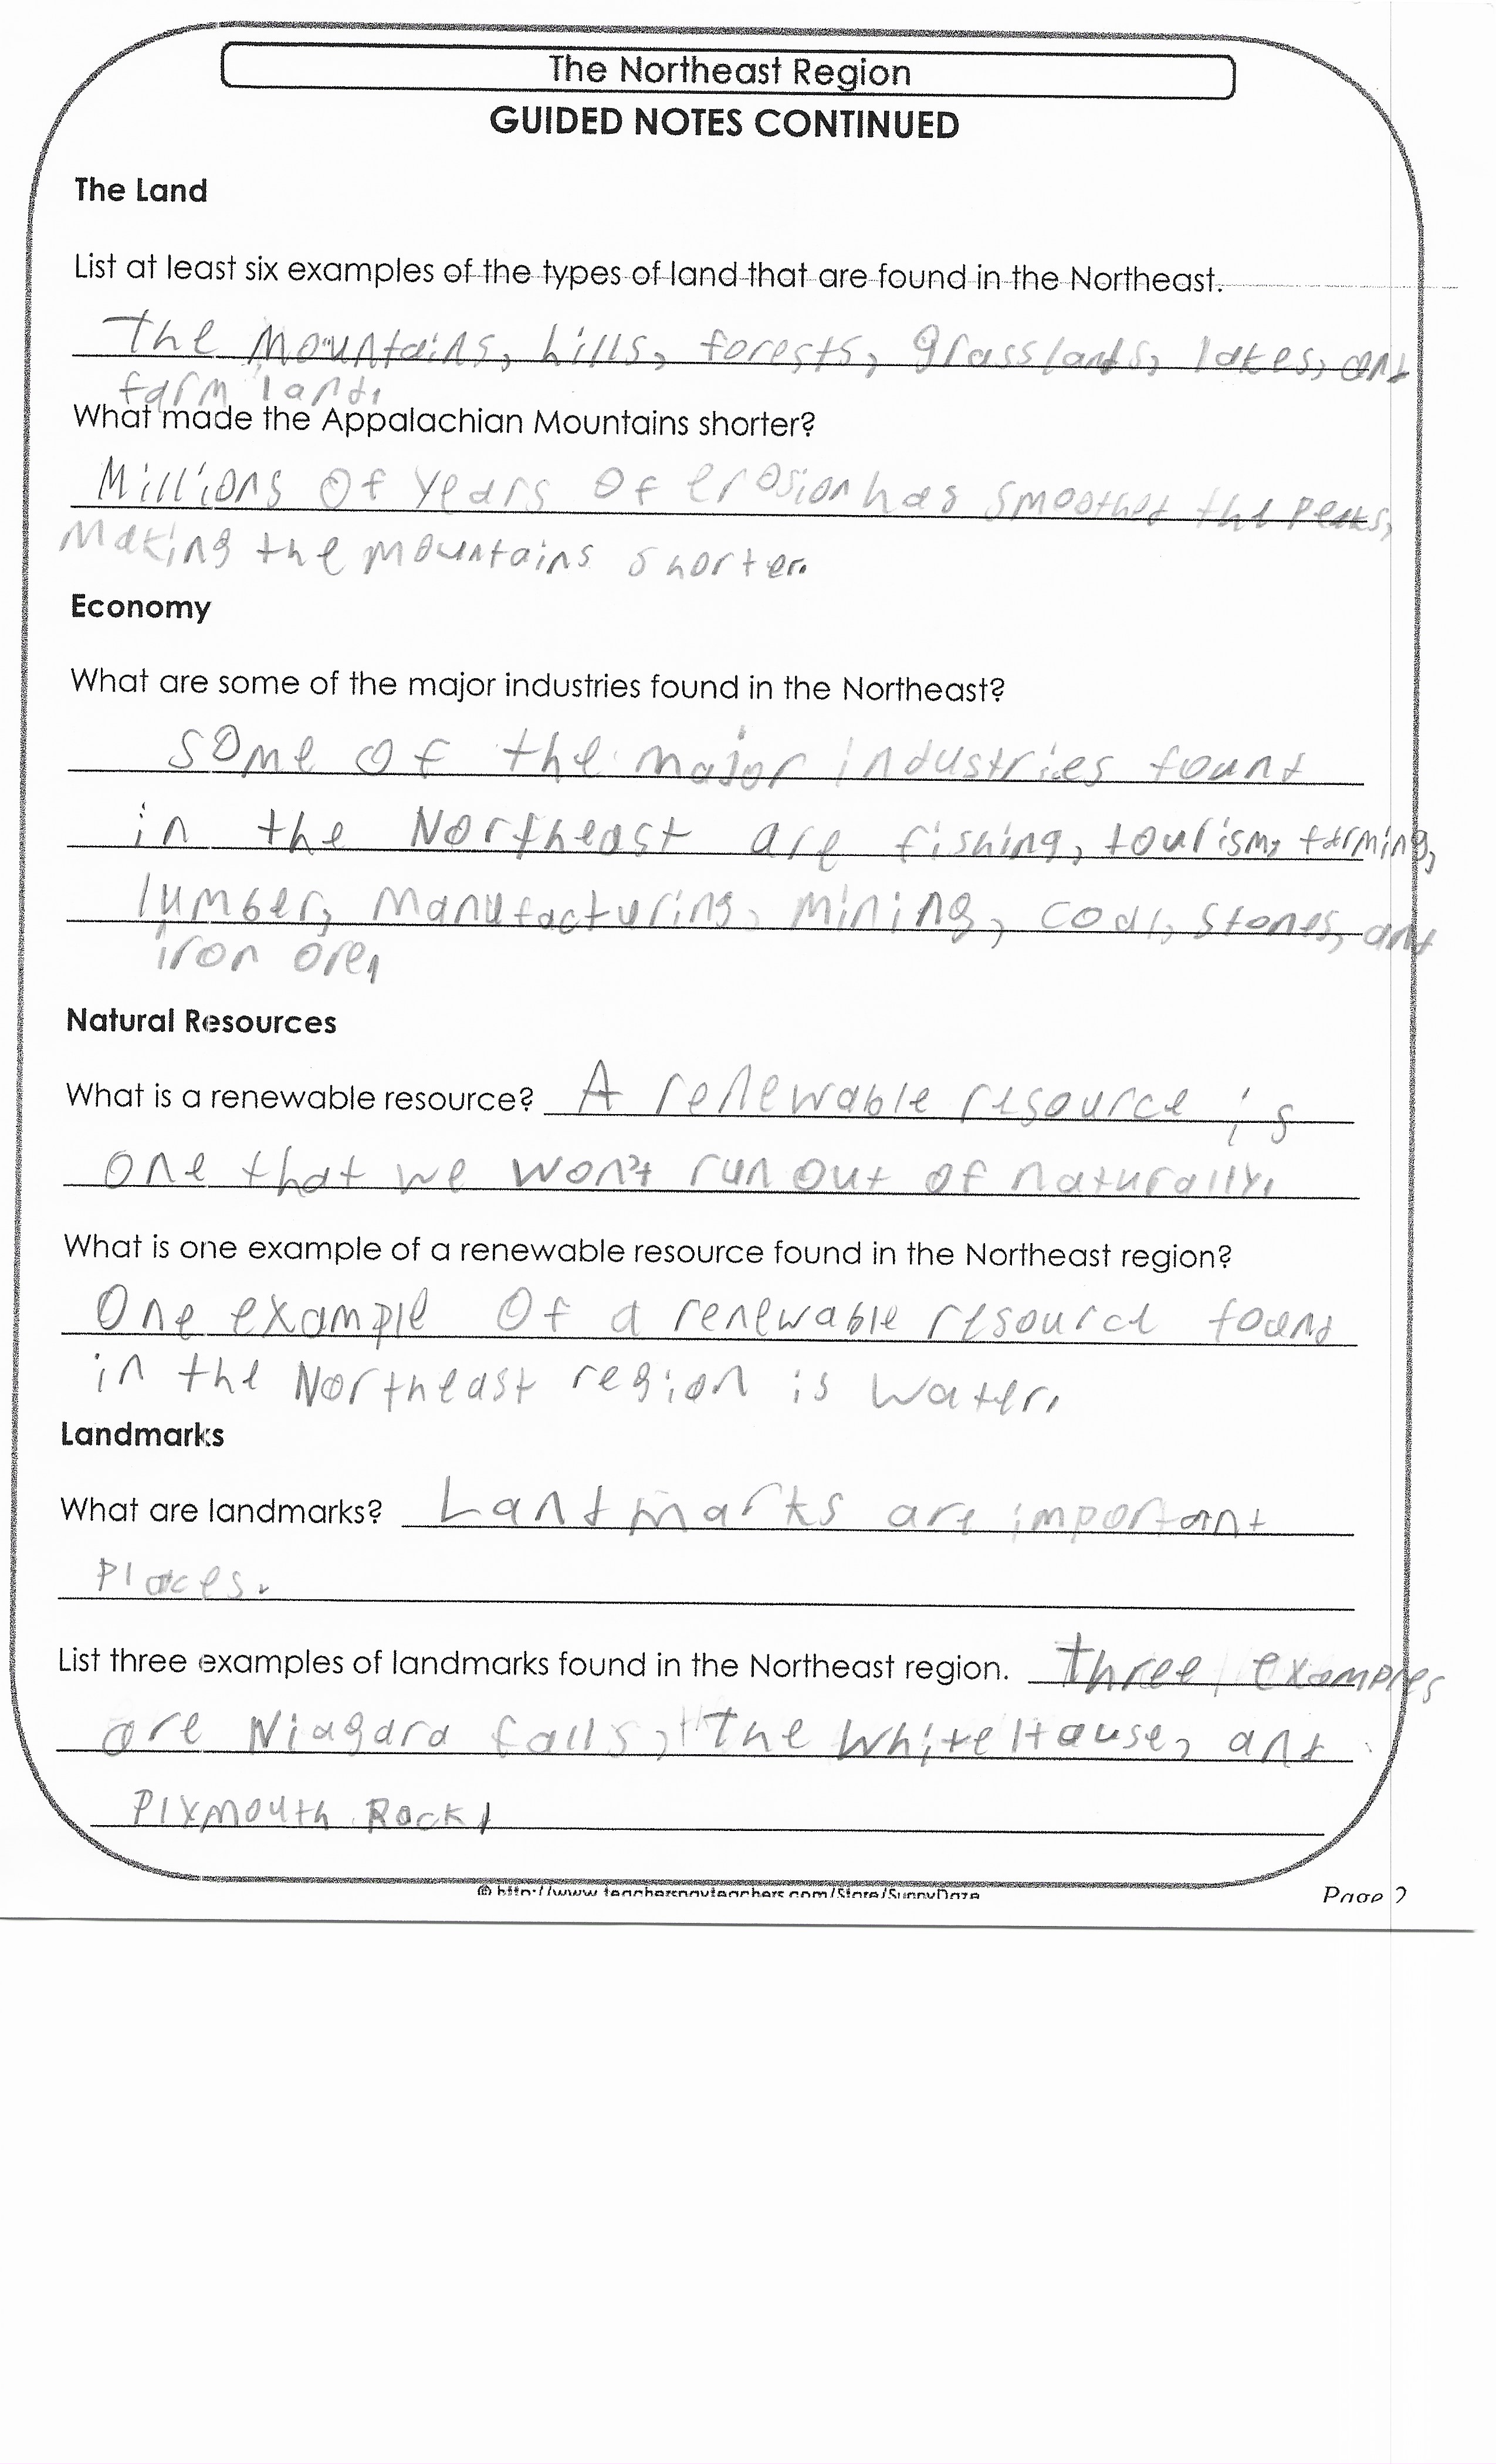 The Northeast Region
GUIDED NOTES CONTINUED
The Land
List at least six examples of the types of land that are found in the Northeast.
The Mountains, hills, forests, grasslands, lakes, and
farm land.
What made the Appalachian Mountains shorter?
Millions of years of erosion has smoothed the peaks,
Making the mountains shorter.
Economy
What are some of the major industries found in the Northeast?
some of the major industries found
in the Northeast are fishing, tourism, farming,
lumber, manufacturing, mining, coal, stones, and
iron ore.
Natural Resources
What is a renewable resource? A renewable resource is
one that we won't run out of naturally.
What is one example of a renewable resource found in the Northeast region?
One example of a renewable resource found
in the Northeast region is water.
Landmarks
What are landmarks? Landmarks are important
Places.
List three examples of landmarks found in the Northeast region. three examples
are Niagara falls, The White House, and
Plymouth Rock.
© http://www.teacherspayteachers.com/Store/SunnyDaze
Page 2